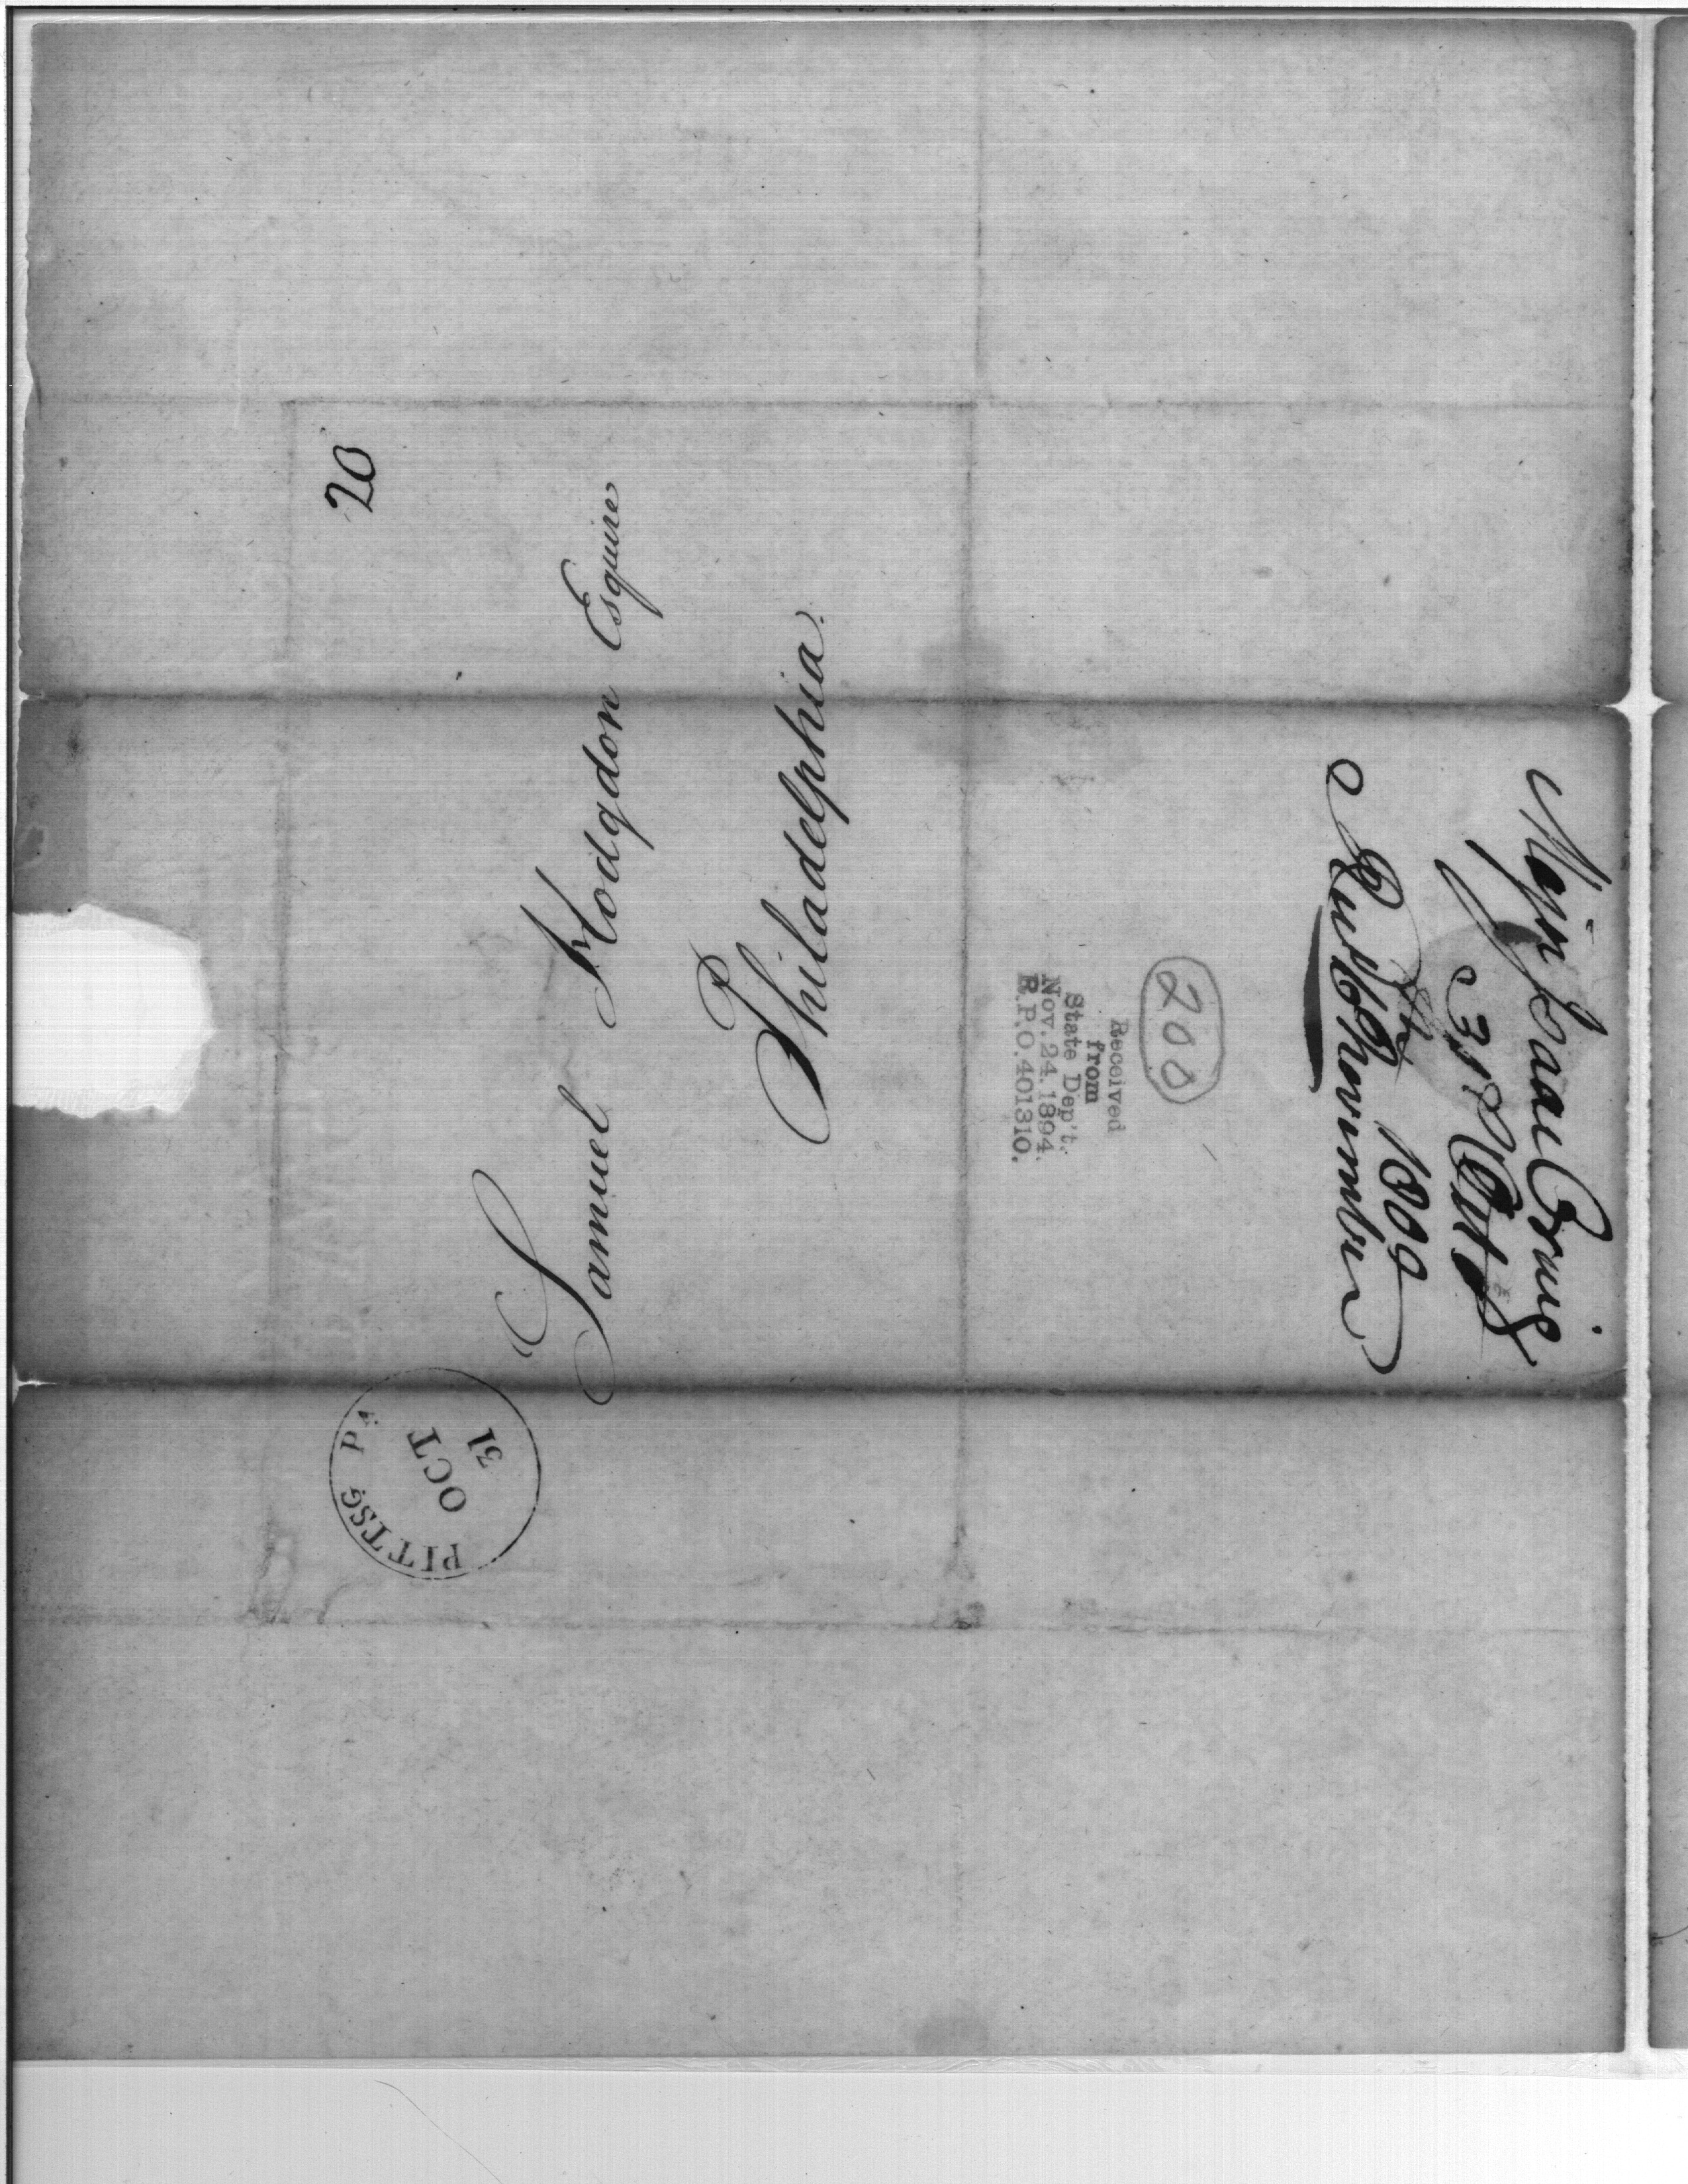 20
Samuel Hodgdon Esquire
Philadelphia.
PITTSG PA
OCT
31
Majr Isaac Craig
31st Octo
1809
Recd 8th Novembr
200
Received
from
State Dep't.
Nov. 24. 1894.
R.P.O. 401310.